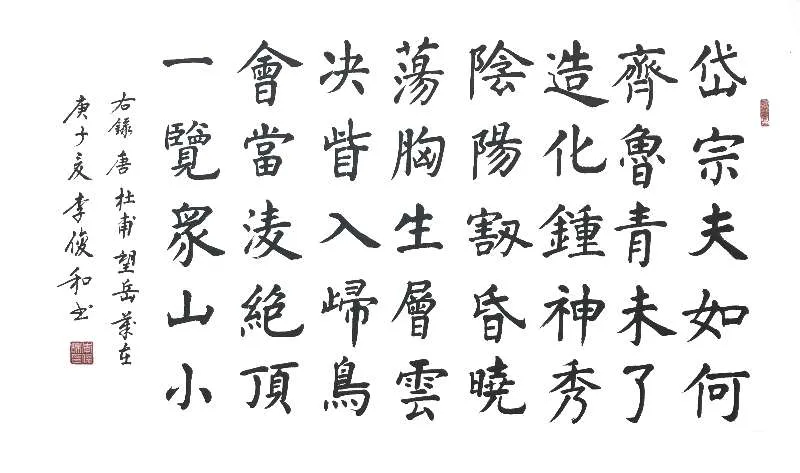 岱宗夫如何
齊魯青未了
造化鍾神秀
陰陽割昏曉
蕩胸生層雲
决眥入歸鳥
會當淩絶頂
一覽衆山小
右録唐杜甫望岳
庚子夏李俊和书